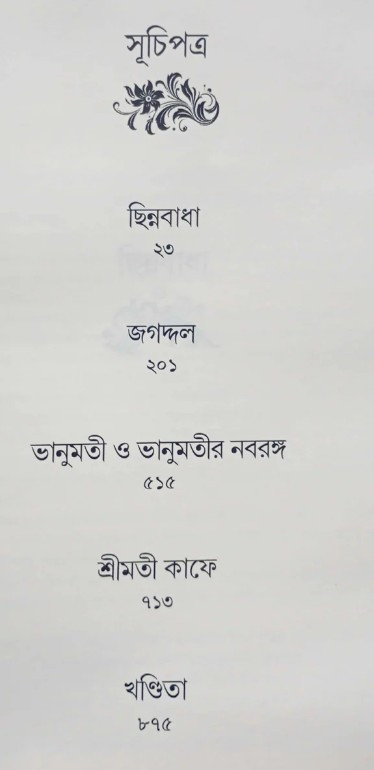 সূচিপত্র
ছিন্নবাধা
২৩
জগদ্দল
২০১
ভানুমতী ও ভানুমতীর নবরঙ্গ
৫১৫
শ্রীমতী কাফে
৭১৩
খণ্ডিতা
৮৭৫